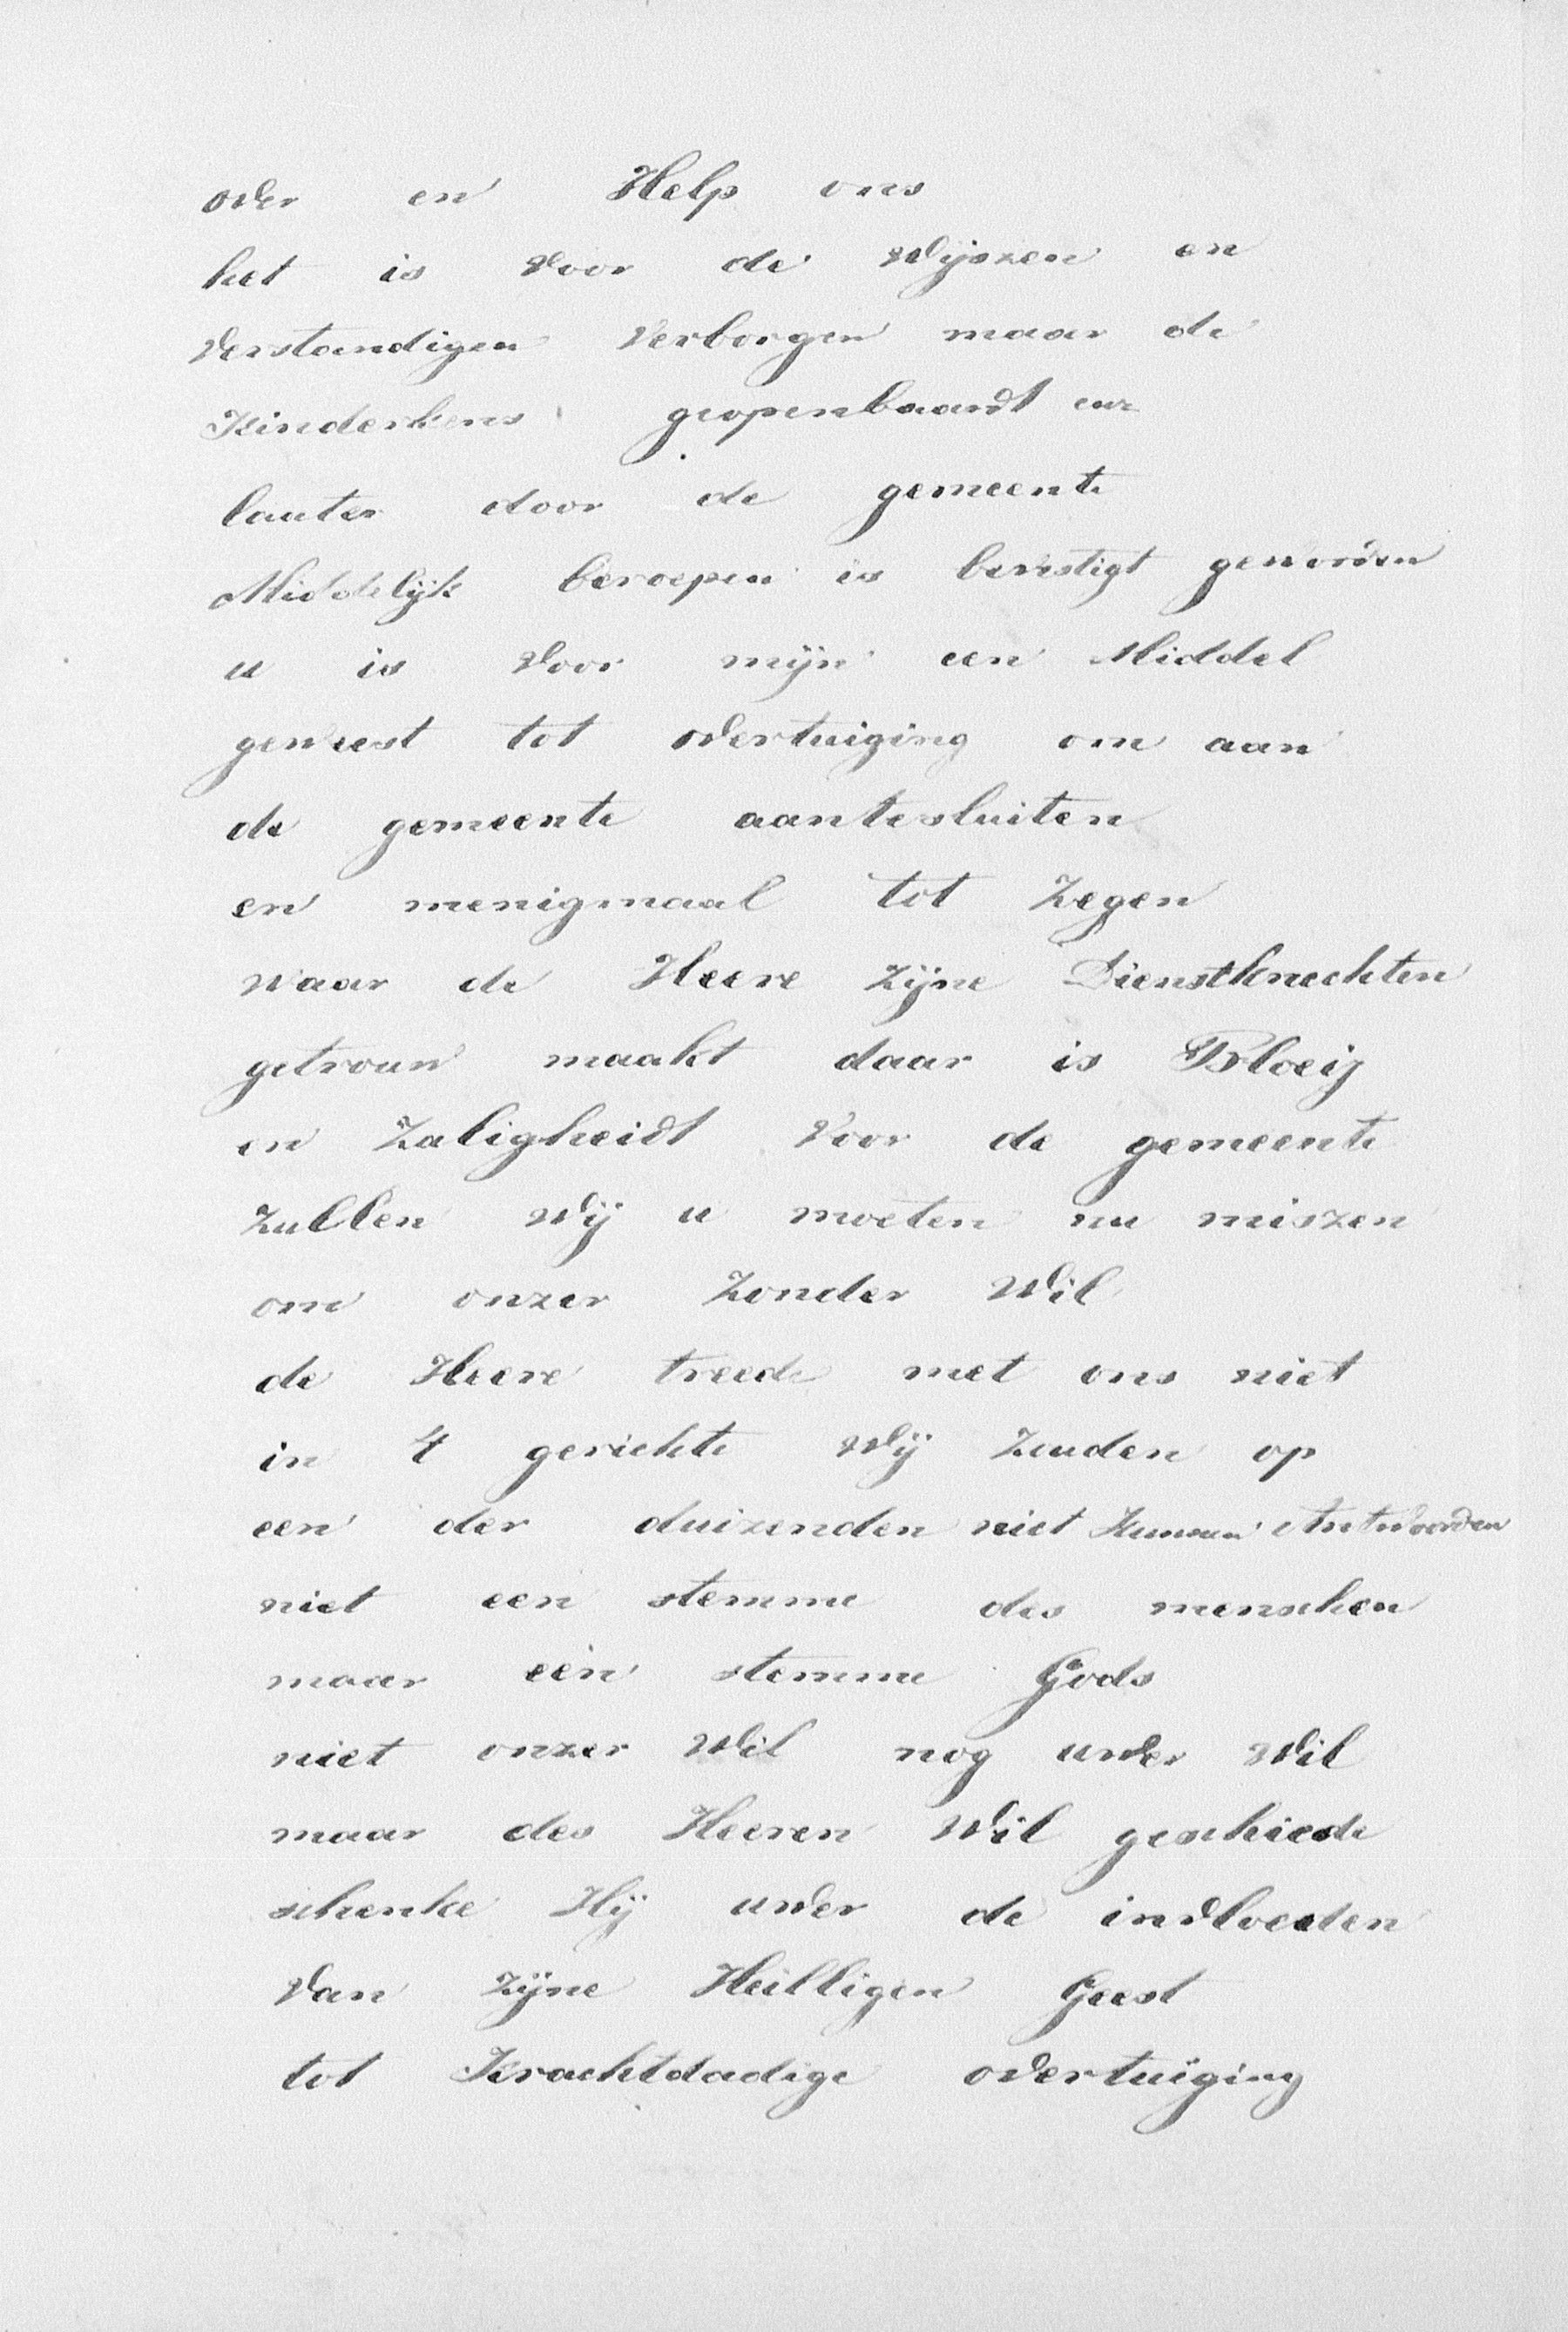 over en Help ons
het is voor de wijszen en
verstandigen verborgen maar de
Kinderkens geopenbaardt enz
lauter door de gemeente
Middelijk beroepen is bevistigt geworden
u is voor mijn een Middel
geweest tot overtuiging om aan
de gemeente aantesluiten
en menigmaal tot Zegen
waar de Heere Zijne Dienstknechten
getrouw maakt daar is Bloeij
en Zaligheidt voor de gemeente
Zullen wij u moeten nu miszen
om onzer Zonder wil
de Heere treede met ons niet
in 't gerichte wij Zuuden op
een der duizenden niet Kunnen Antwoorden
niet een stemme des menschen
maar een stemme Gods
niet onzer wil nog uwer wil
maar des Heeren wil geschiede
schenke Hij uwer de invloeden
van Zijne Heilligen Geest
tot Krachtdadige overtuiging